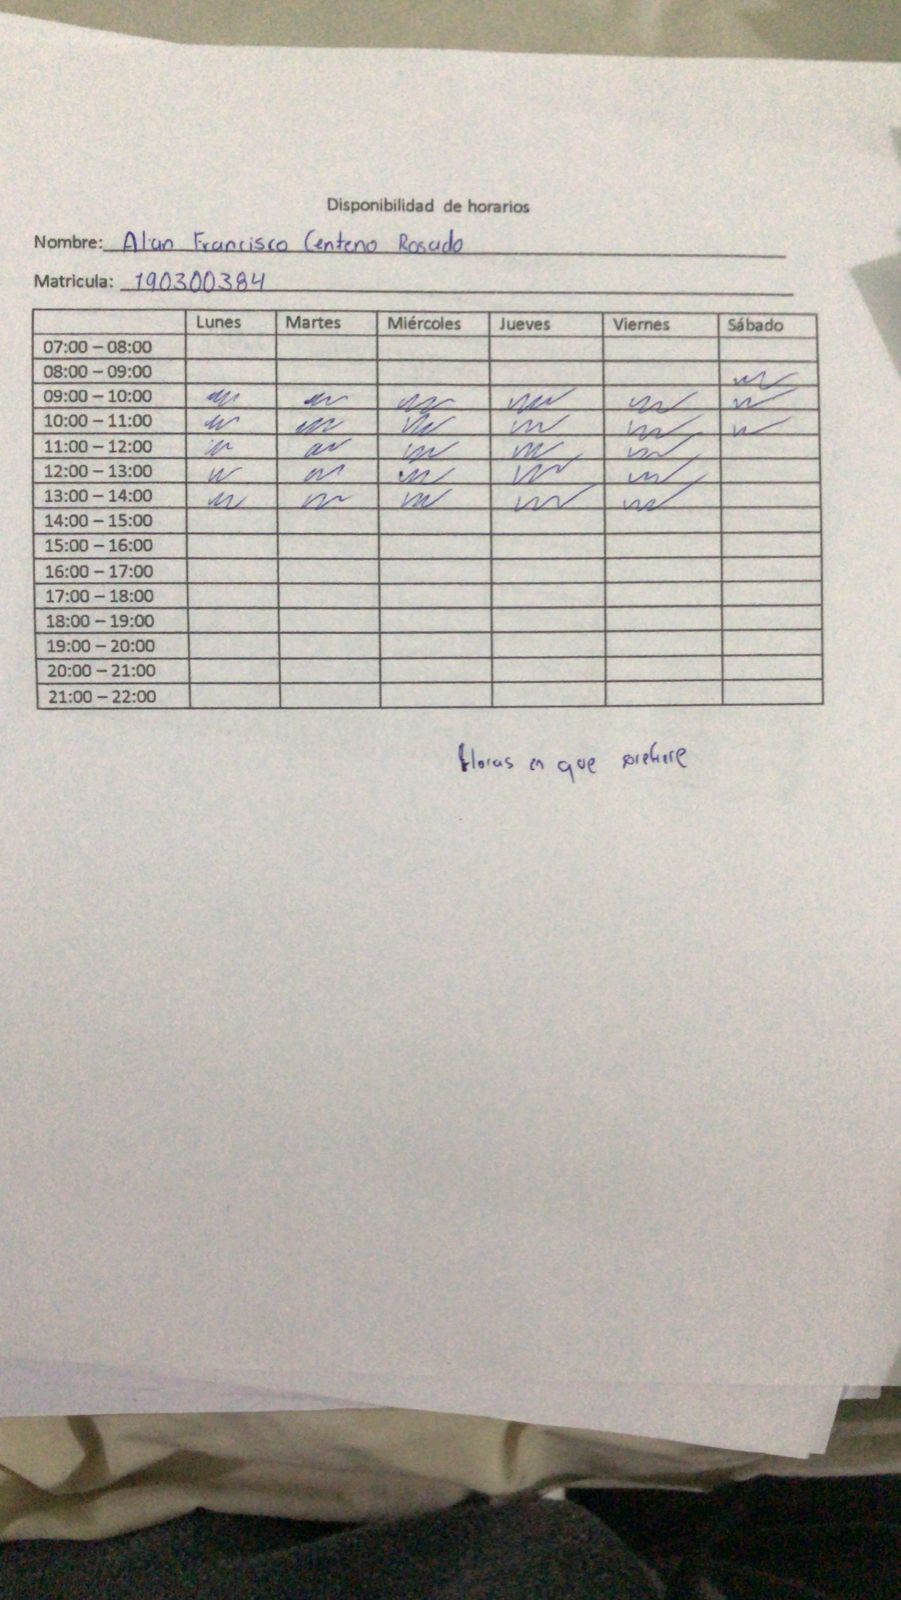 Disponibilidad de horarios
Nombre: Alan Francisco Centeno Rosado
Matricula: 190300384
Lunes Martes Miércoles Jueves Viernes Sábado
07:00 – 08:00
08:00 – 09:00
09:00 – 10:00
10:00 – 11:00
11:00 – 12:00
12:00 – 13:00
13:00 – 14:00
14:00 – 15:00
15:00 – 16:00
16:00 – 17:00
17:00 – 18:00
18:00 – 19:00
19:00 – 20:00
20:00 – 21:00
21:00 – 22:00
Horas en que prefiere